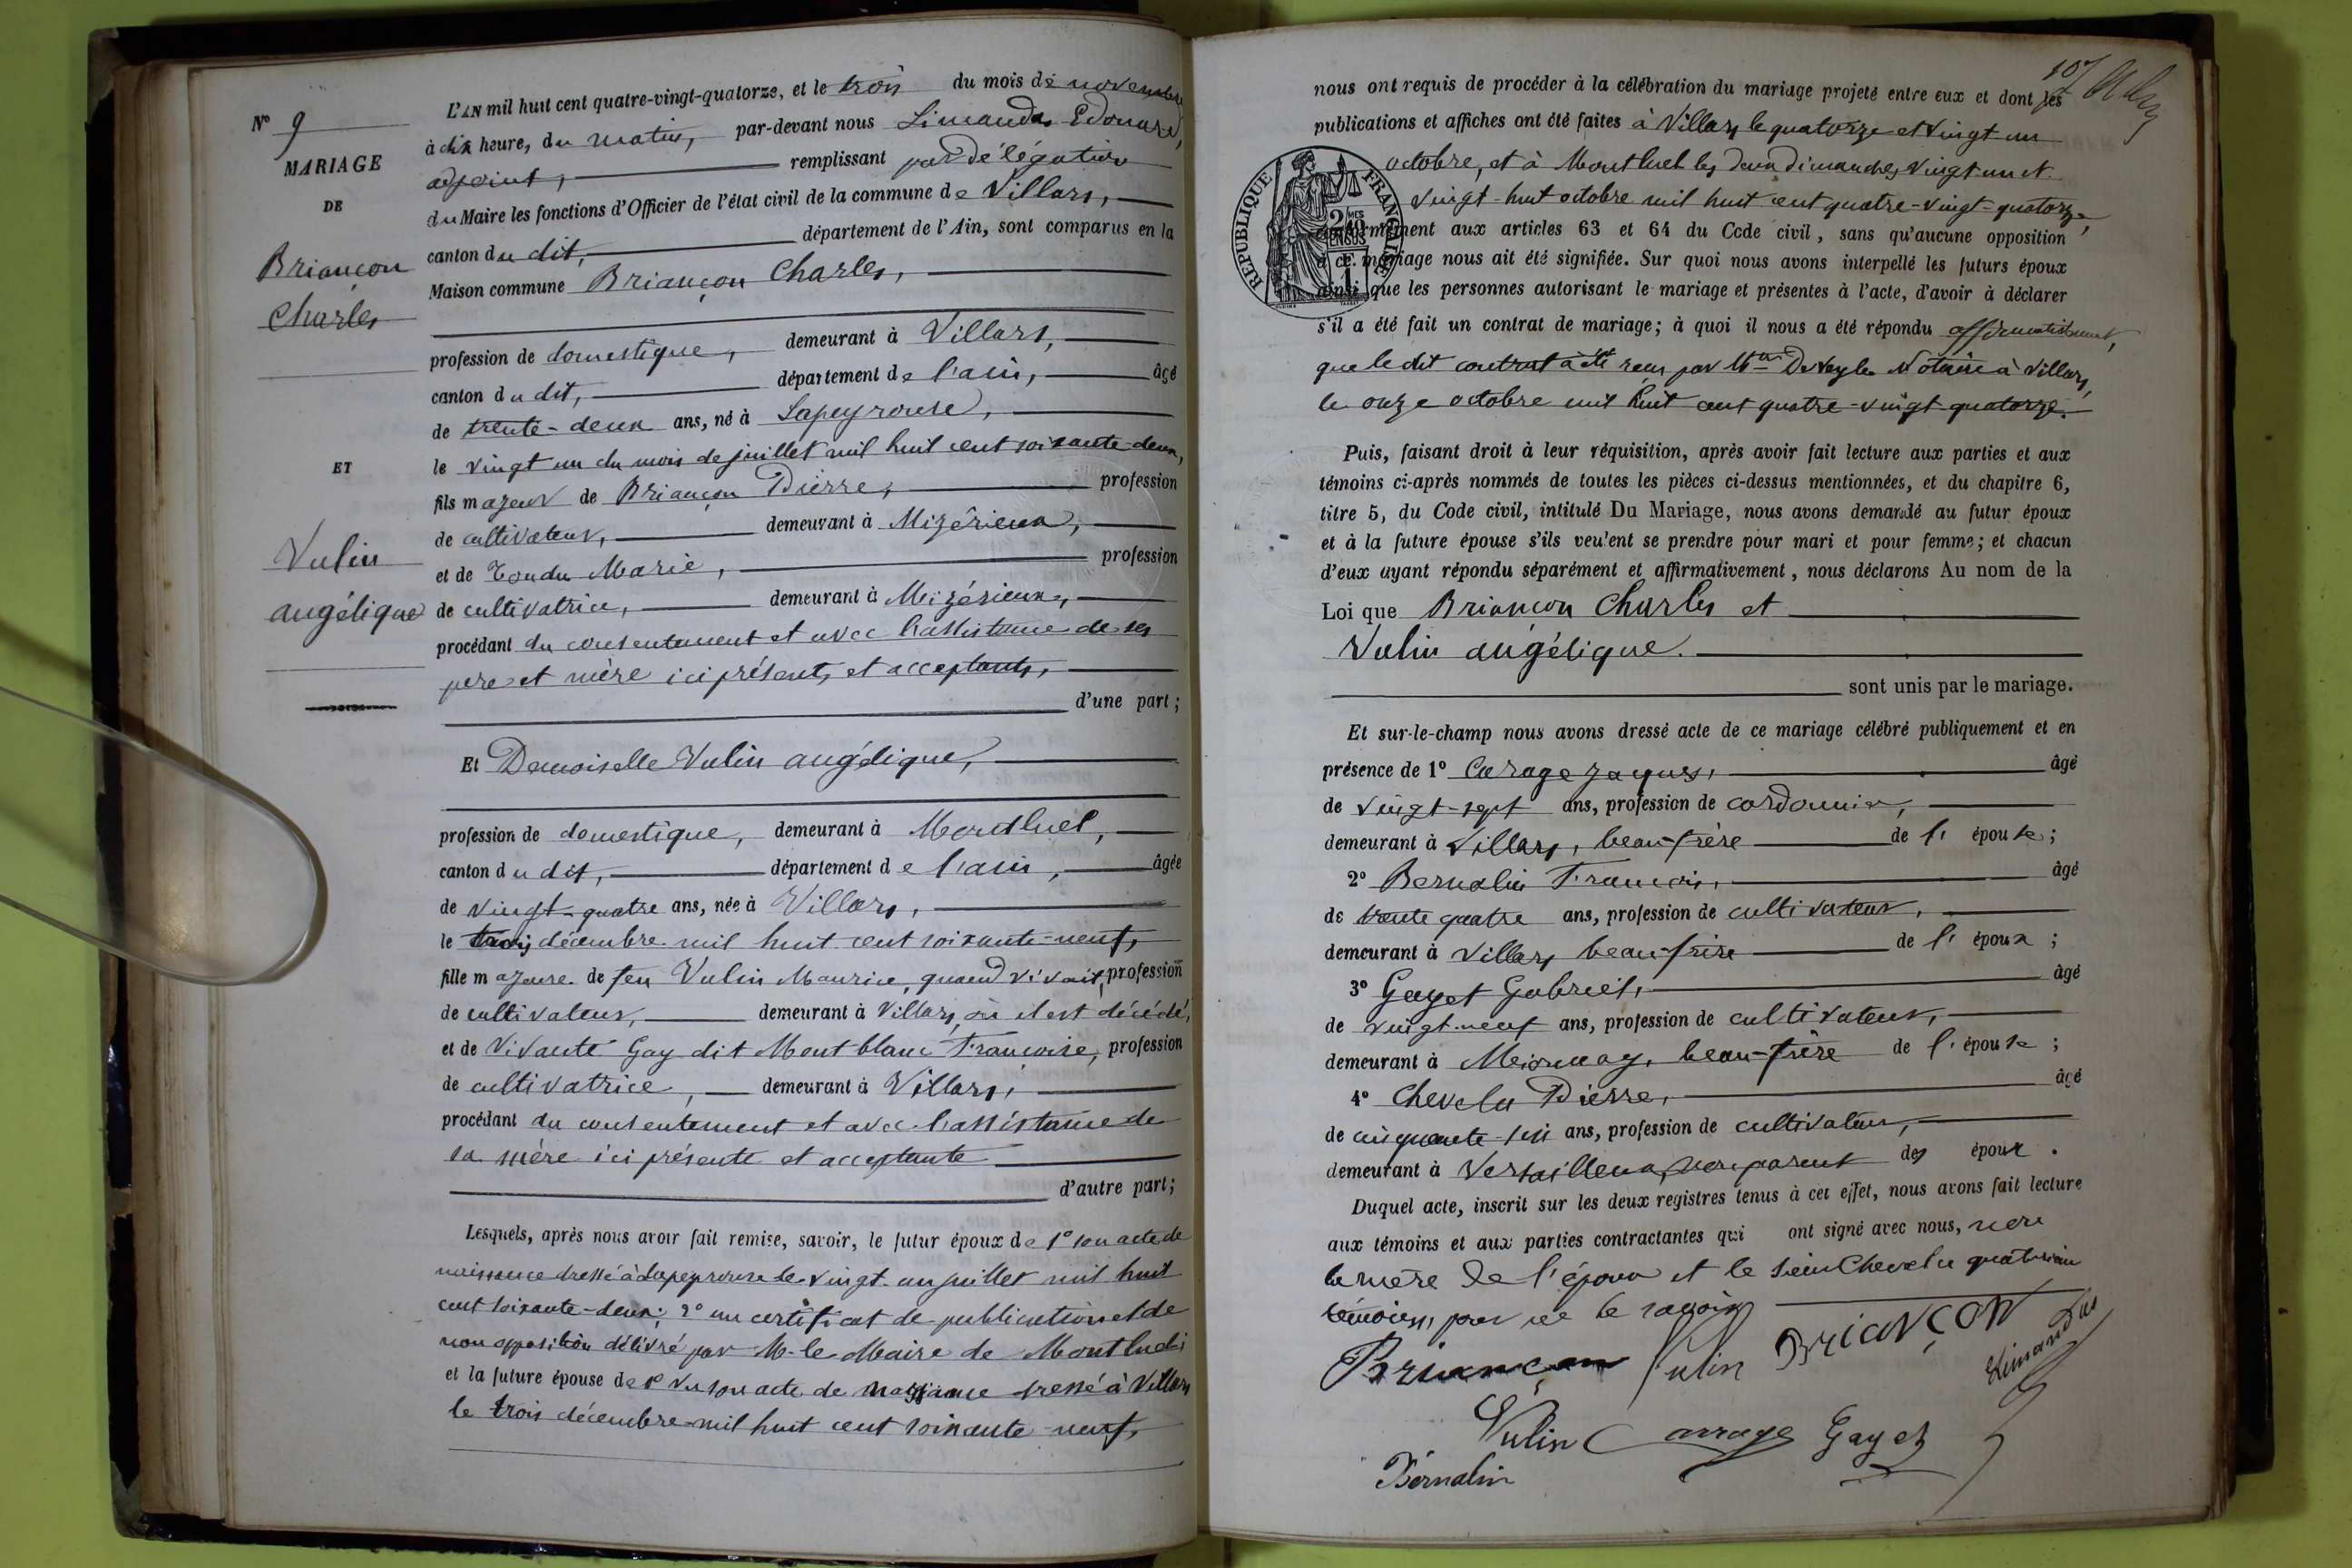 N° 9
MARIAGE
DE
Briançon
Charles
ET
Vulin
angélique
L'AN mil huit cent quatre-vingt-quatorze, et le trois du mois de novembre
à dix heure, du matin, par-devant nous Limandas Edouard,
adjoint, remplissant par délégation
du Maire les fonctions d'Officier de l'état civil de la commune de Villars,
canton du dit, département de l'Ain, sont comparus en la
Maison commune Briançon Charles,
profession de domestique, demeurant à Villars,
canton du dit, département de l'ain, âgé
de trente-deux ans, né à Lapeyrouse,
le vingt un du mois de juillet mil huit cent soixante-deux,
fils majeur de Briançon Pierre, profession
de cultivateur, demeurant à Mizérieux,
et de Tondu Marie, profession
de cultivatrice, demeurant à Mizérieux,
procédant du consentement et avec l'assistance de ses
père et mère ici présents et acceptants,
d'une part;
Et Demoiselle Vulin angélique,
profession de domestique, demeurant à Montluel,
canton du dit, département de l'ain, âgée
de vingt-quatre ans, née à Villars,
le trois décembre mil huit cent soixante-neuf,
fille majeure de feu Vulin Maurice, quand vivait, profession
de cultivateur, demeurant à Villars où il est décédé,
et de Vivante Gay dit Montblanc Françoise, profession
de cultivatrice, demeurant à Villars,
procédant du consentement et avec l'assistance de
sa mère ici présente et acceptante
d'autre part;
Lesquels, après nous avoir fait remise, savoir, le futur époux de 1° son acte de
naissance dressé à Lapeyrouse le vingt un juillet mil huit
cent soixante-deux; 2° un certificat de publication et de
non opposition délivré par M. le Maire de Montluel;
et la future épouse de 1° Vu son acte de naissance dressé à Villars
le trois décembre mil huit cent soixante-neuf,
107
nous ont requis de procéder à la célébration du mariage projeté entre eux et dont les
publications et affiches ont été faites à Villars le quatorze et vingt un
octobre, et à Montluel les deux dimanches vingt un et
vingt-huit octobre mil huit cent quatre-vingt-quatorze,
RÉPUBLIQUE FRANÇAISE
conformément aux articles 63 et 64 du Code civil, sans qu'aucune opposition
à ce mariage nous ait été signifiée. Sur quoi nous avons interpellé les futurs époux
ainsi que les personnes autorisant le mariage et présentes à l'acte, d'avoir à déclarer
s'il a été fait un contrat de mariage; à quoi il nous a été répondu affirmativement,
que le dit contrat a été reçu par Mtre Notaire à Villars,
le onze octobre mil huit cent quatre-vingt-quatorze.
Puis, faisant droit à leur réquisition, après avoir fait lecture aux parties et aux
témoins ci-après nommés de toutes les pièces ci-dessus mentionnées, et du chapitre 6,
titre 5, du Code civil, intitulé Du Mariage, nous avons demandé au futur époux
et à la future épouse s'ils veulent se prendre pour mari et pour femme; et chacun
d'eux ayant répondu séparément et affirmativement, nous déclarons Au nom de la
Loi que Briançon Charles et
Vulin angélique.
sont unis par le mariage.
Et sur-le-champ nous avons dressé acte de ce mariage célébré publiquement et en
présence de 1° Carage Jaques, âgé
de vingt-sept ans, profession de cordonnier,
demeurant à Villars, beau-frère de l' épouse;
2° Bernalin François, âgé
de trente quatre ans, profession de cultivateur,
demeurant à Villars beau-frère de l' époux;
3° Gayet Gabriel, âgé
de vingt-neuf ans, profession de cultivateur,
demeurant à Mionnay, beau-frère de l' épouse;
4° Chevelu Pierre, âgé
de cinquante-six ans, profession de cultivateur,
demeurant à Versailleux, non parent des époux.
Duquel acte, inscrit sur les deux registres tenus à cet effet, nous avons fait lecture
aux témoins et aux parties contractantes qui ont signé avec nous, non
la mère de l'époux et le sieur Chevelu quatrième
témoin, pour ne le savoir
Briançon Vulin BRIANÇON Limandas
Vulin Carrage Gayet
Bernalin